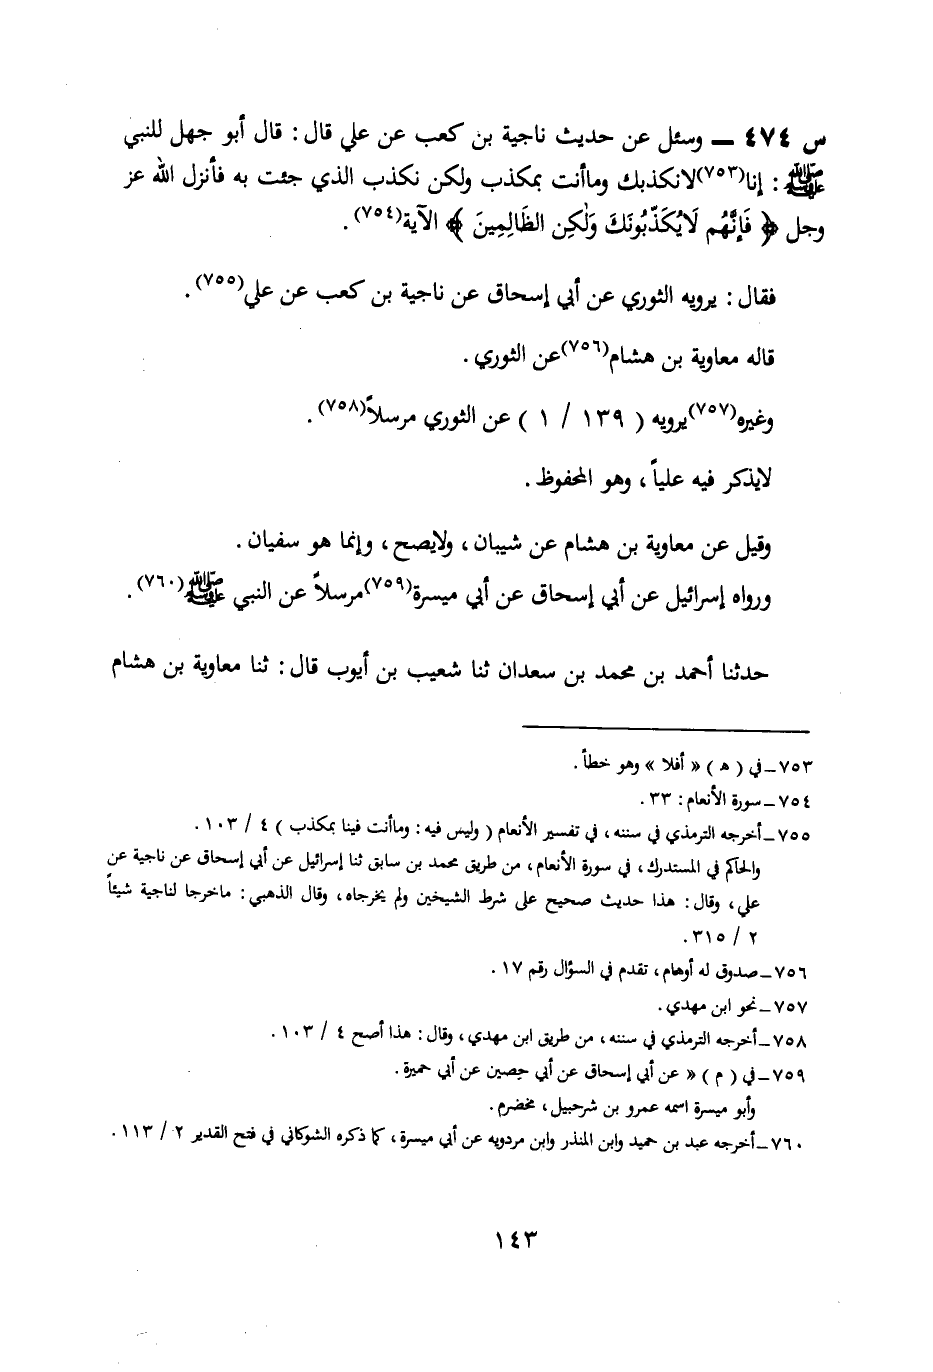 س ٤٧٤ ــ وسئل عن حديث ناجية بن كعب عن علي قال : قال أبو جهل للنبي
ﷺ : إنا(٧٥٣)لانكذبك وماأنت بمكذب ولكن نكذب الذي جئت به فأنزل الله عز
وجل ﴿ فَإِنَّهُم لَايُكَذِّبُونَكَ وَلَٰكِن الظَالِمِينَ ﴾ الآية(٧٥٤).
فقال : يرويه الثوري عن أبي إسحاق عن ناجية بن كعب عن علي(٧٥٥).
قاله معاوية بن هشام(٧٥٦)عن الثوري .
وغيره(٧٥٧)يرويه ( ١٣٩ / ١ ) عن الثوري مرسلاً(٧٥٨).
لايذكر فيه علياً ، وهو المحفوظ .
وقيل عن معاوية بن هشام عن شيبان ، ولايصح ، وإنما هو سفيان .
ورواه إسرائيل عن أبي إسحاق عن أبي ميسرة(٧٥٩)مرسلاً عن النبي ﷺ(٧٦٠).
حدثنا أحمد بن محمد بن سعدان ثنا شعيب بن أيوب قال : ثنا معاوية بن هشام
٧٥٣ــ في ( هـ ) « أفلا » وهو خطأ .
٧٥٤ ــ سورة الأنعام : ٣٣ .
٧٥٥ ــ أخرجه الترمذي في سننه ، في تفسير الأنعام ( وليس فيه : وماأنت فينا بمكذب ) ٤ / ١٠٣ .
والحاكم في المستدرك ، في سورة الأنعام ، من طريق محمد بن سابق ثنا إسرائيل عن أبي إسحاق عن ناجية عن
علي ، وقال : هذا حديث صحيح على شرط الشيخين ولم يخرجاه ، وقال الذهبي : ماخرجا لناجية شيئاً
٢ / ٣١٥ .
٧٥٦ ــ صدوق له أوهام ، تقدم في السؤال رقم ١٧ .
٧٥٧ ــ نحو ابن مهدي .
٧٥٨ ــ أخرجه الترمذي في سننه ، من طريق ابن مهدي ، وقال : هذا أصح ٤ / ١٠٣ .
٧٥٩ ــ في ( م ) « عن أبي إسحاق عن أبي حصين عن أبي حميرة .
وأبو ميسرة اسمه عمرو بن شرحبيل ، مخضرم .
٧٦٠ ــ أخرجه عبد بن حميد وابن المنذر وابن مردويه عن أبي ميسرة ، كما ذكره الشوكاني في فتح القدير ٢ / ١١٣ .
١٤٣